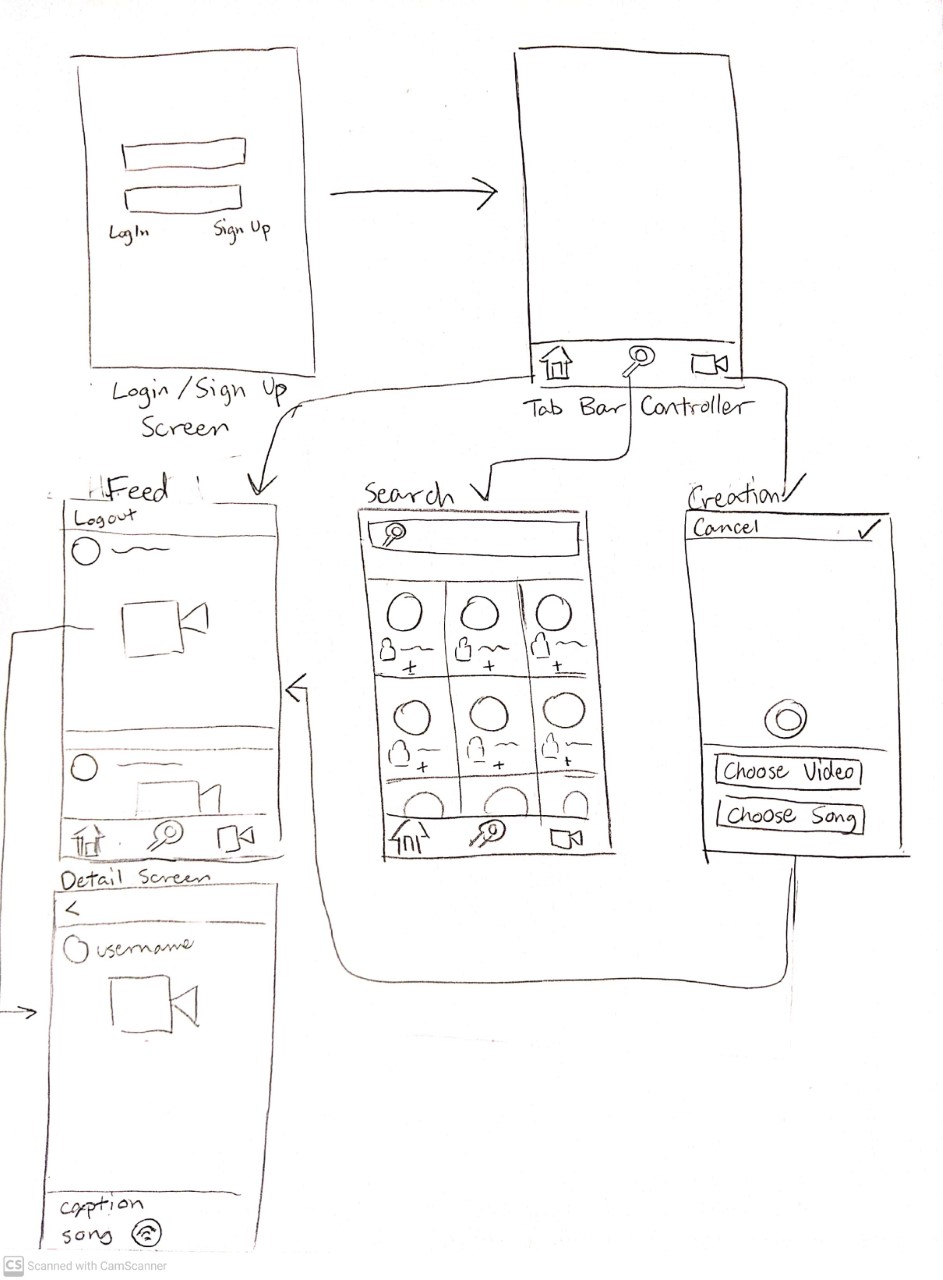 LogIn
Sign Up
Login/Sign Up
Screen
Tab Bar Controller
Feed
Logout
Search
Creation
Cancel
Choose Video
Choose Song
Detail Screen
<
username
caption
song
CS Scanned with CamScanner